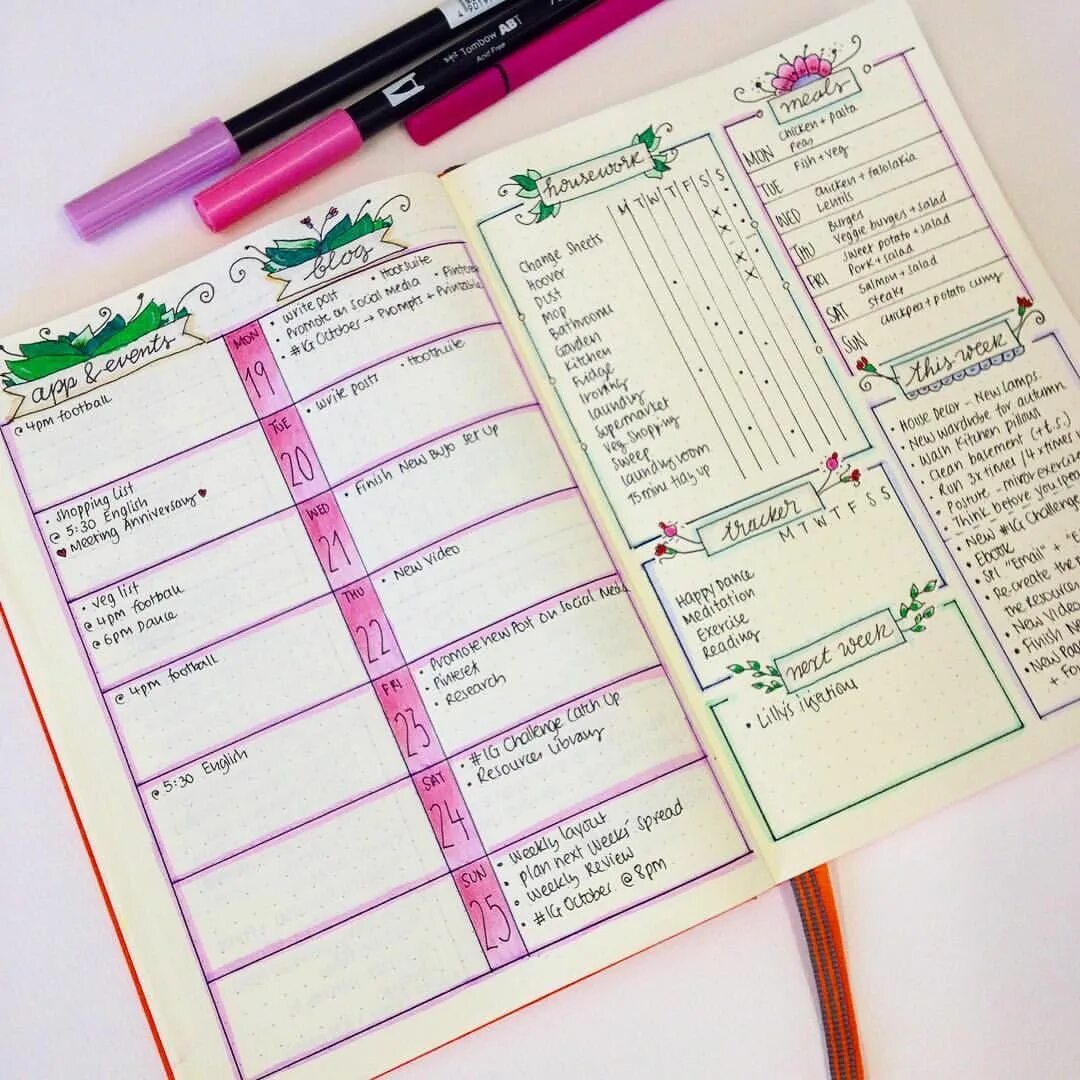 Tombow ABT
Acid Free
app & events
@ 4pm football
• Shopping List
@ 5:30 English
Meeting Anniversary
• veg list
@ 4pm football
@ 6pm Dance
@ 4pm football
@ 5:30 English
MON
19
TUE
20
WED
21
THU
22
FRI
23
SAT
24
SUN
25
blog
• write post • Hootsuite
Promote on social Media
• #IG October → Prompts + Printable
• write posts • Hootsuite
• Finish New Bujo Set Up
• New Video
• Promote new Post on social Media
• Pinterest
• Research
• #IG Challenge Catch Up
• Resources Library
• Weekly layout
• plan next weeks' spread
• Weekly Review
• #IG October @ 8pm
housework
M T W T F S S
Change Sheets
Hoover
Dust
Mop
Bathrooms
Garden
Kitchen
Fridge
Ironing
Laundry
Supermarket
Veg Shopping
Sweep
Laundry room
15 mins tidy up
tracker
M T W T F S S
Happy Dance
Meditation
Exercise
Reading
next week
• Lilly's injections
meals
MON
Chicken + pasta
Peas
TUE
Fish + veg
WED
Chicken +
Lentils
THU
Burgers
Veggie burgers + salad
FRI
Sweet potato + salad
Pork + salad
SAT
Salmon + salad
Steaks
SUN
Chickpea + potato curry
this week
• House Decor - New lamps
• New wardrobe for autumn
• Wash Kitchen pillows
• Clean basement (+ t.s.)
• Run 3x times / 4x times
• Posture - mirror exercise
• Think before you
• New #IG Challenge
• Ebook
• "Email" +
• Re-create the
the Resources
• New Video
• Finish
• New
+